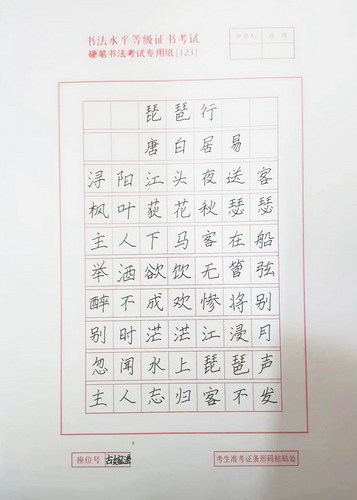 书法水平等级证书考试
硬笔书法考试专用纸(123)
琵琶行
唐白居易
浔阳江头夜送客
枫叶荻花秋瑟瑟
主人下马客在船
举酒欲饮无管弦
醉不成欢惨将别
别时茫茫江浸月
忽闻水上琵琶声
主人忘归客不发
座位号
考生准考证条形码粘贴处